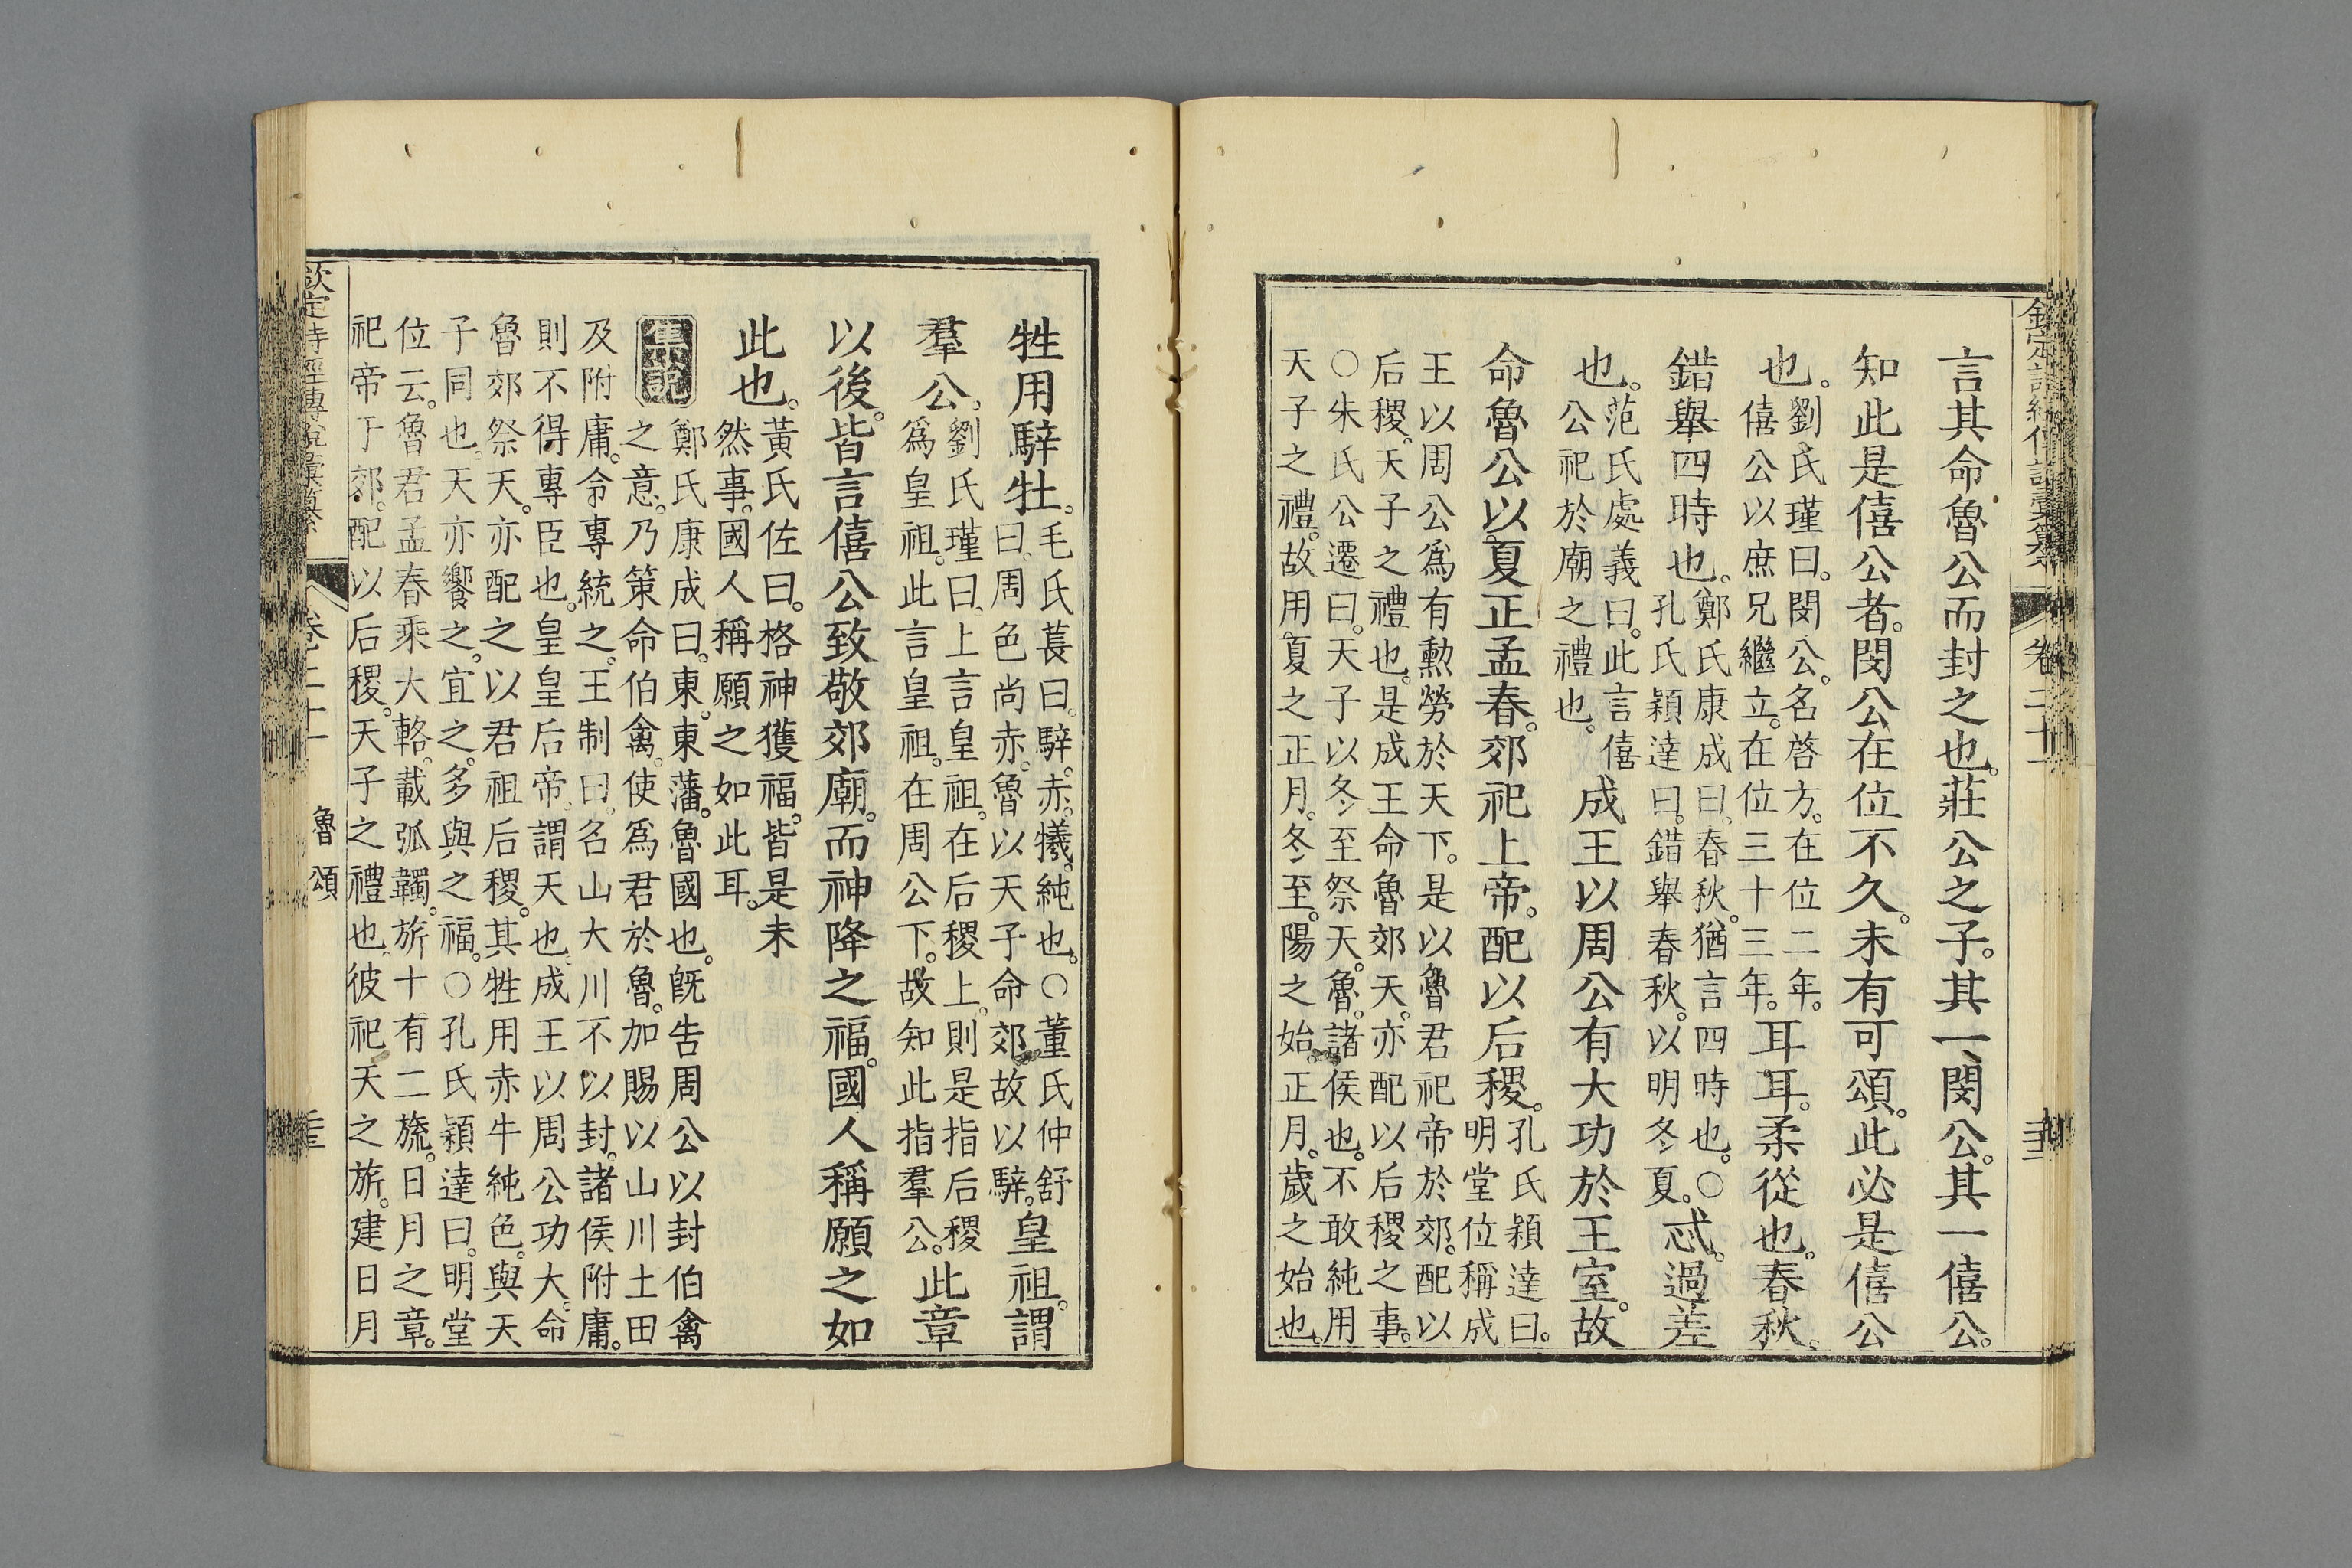 言其命魯公而封之也。莊公之子。其一、閔公。其一僖公。
知此是僖公者。閔公在位不久。未有可頌。此必是僖公
也。劉氏瑾曰。閔公。名啓方。在位二年。僖公以庶兄繼立。在位三十三年。耳耳。柔從也。春秋。
錯舉四時也。鄭氏康成曰。春秋。猶言四時也。○孔氏穎達曰。錯舉春秋。以明冬夏。忒。過差
也。范氏處義曰。此言僖公祀於廟之禮也。成王以周公有大功於王室。故
命魯公以夏正孟春。郊祀上帝。配以后稷。孔氏穎達曰。明堂位稱成
王以周公爲有勲勞於天下。是以魯君祀帝於郊。配以
后稷。天子之禮也。是成王命魯郊天。亦配以后稷之事。
○朱氏公遷曰。天子以冬至祭天。魯。諸侯也。不敢純用
天子之禮。故用夏之正月。冬至。陽之始。正月。歲之始也。
欽定詩經傳說彙纂 卷二十一
牲用騂牡。毛氏萇曰。騂。赤。犧。純也。○董氏仲舒曰。周色尚赤。魯以天子命郊。故以騂。皇祖。謂
羣公。劉氏瑾曰。上言皇祖。在后稷上。則是指后稷爲皇祖。此言皇祖。在周公下。故知此指羣公。此章
以後。皆言僖公致敬郊廟。而神降之福。國人稱願之如
此也。黃氏佐曰。格神獲福。皆是未然事。國人稱願之如此耳。
集說 鄭氏康成曰。東。東藩。魯國也。旣告周公以封伯禽
之意。乃策命伯禽。使爲君於魯。加賜以山川土田
及附庸。令專統之。王制曰。名山大川不以封。諸侯附庸。
則不得專臣也。皇皇后帝。謂天也。成王以周公功大。命
魯郊祭天。亦配之以君祖后稷。其牲用赤牛純色。與天
子同也。天亦饗之。宜之。多與之福。○孔氏穎達曰。明堂
位云。魯君孟春乘大輅。載弧韣。旂十有二旒。日月之章。
祀帝于郊。配以后稷。天子之禮也。彼祀天之旂。建日月
欽定詩經傳說彙纂 卷二十一 魯頌